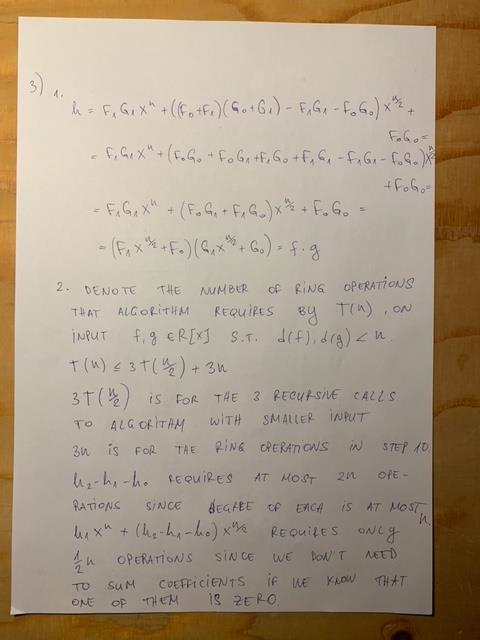 3) 1.
h = F₁G₁xⁿ + ((F₀+F₁)(G₀+G₁) - F₁G₁ - F₀G₀) x^{n/2} +
F₀G₀ =
= F₁G₁xⁿ + (F₀G₀ + F₀G₁ + F₁G₀ + F₁G₁ - F₁G₁ - F₀G₀) x^{n/2}
+ F₀G₀ =
= F₁G₁xⁿ + (F₀G₁ + F₁G₀) x^{n/2} + F₀G₀ =
= (F₁x^{n/2} + F₀)(G₁x^{n/2} + G₀) = f · g
2. DENOTE THE NUMBER OF RING OPERATIONS
THAT ALGORITHM REQUIRES BY T(n), ON
INPUT f, g ∈ R[x] S.T. d(f), d(g) < n.
T(n) ≤ 3T(n/2) + 3n
3T(n/2) IS FOR THE 3 RECURSIVE CALLS
TO ALGORITHM WITH SMALLER INPUT
3n IS FOR THE RING OPERATIONS IN STEP 10.
h₂-h₁-h₀ REQUIRES AT MOST 2n OPE-
RATIONS SINCE DEGREE OF EACH IS AT MOST n.
h₁xⁿ + (h₂-h₁-h₀) x^{n/2} REQUIRES ONLY
½n OPERATIONS SINCE WE DON'T NEED
TO SUM COEFFICIENTS IF WE KNOW THAT
ONE OF THEM IS ZERO.